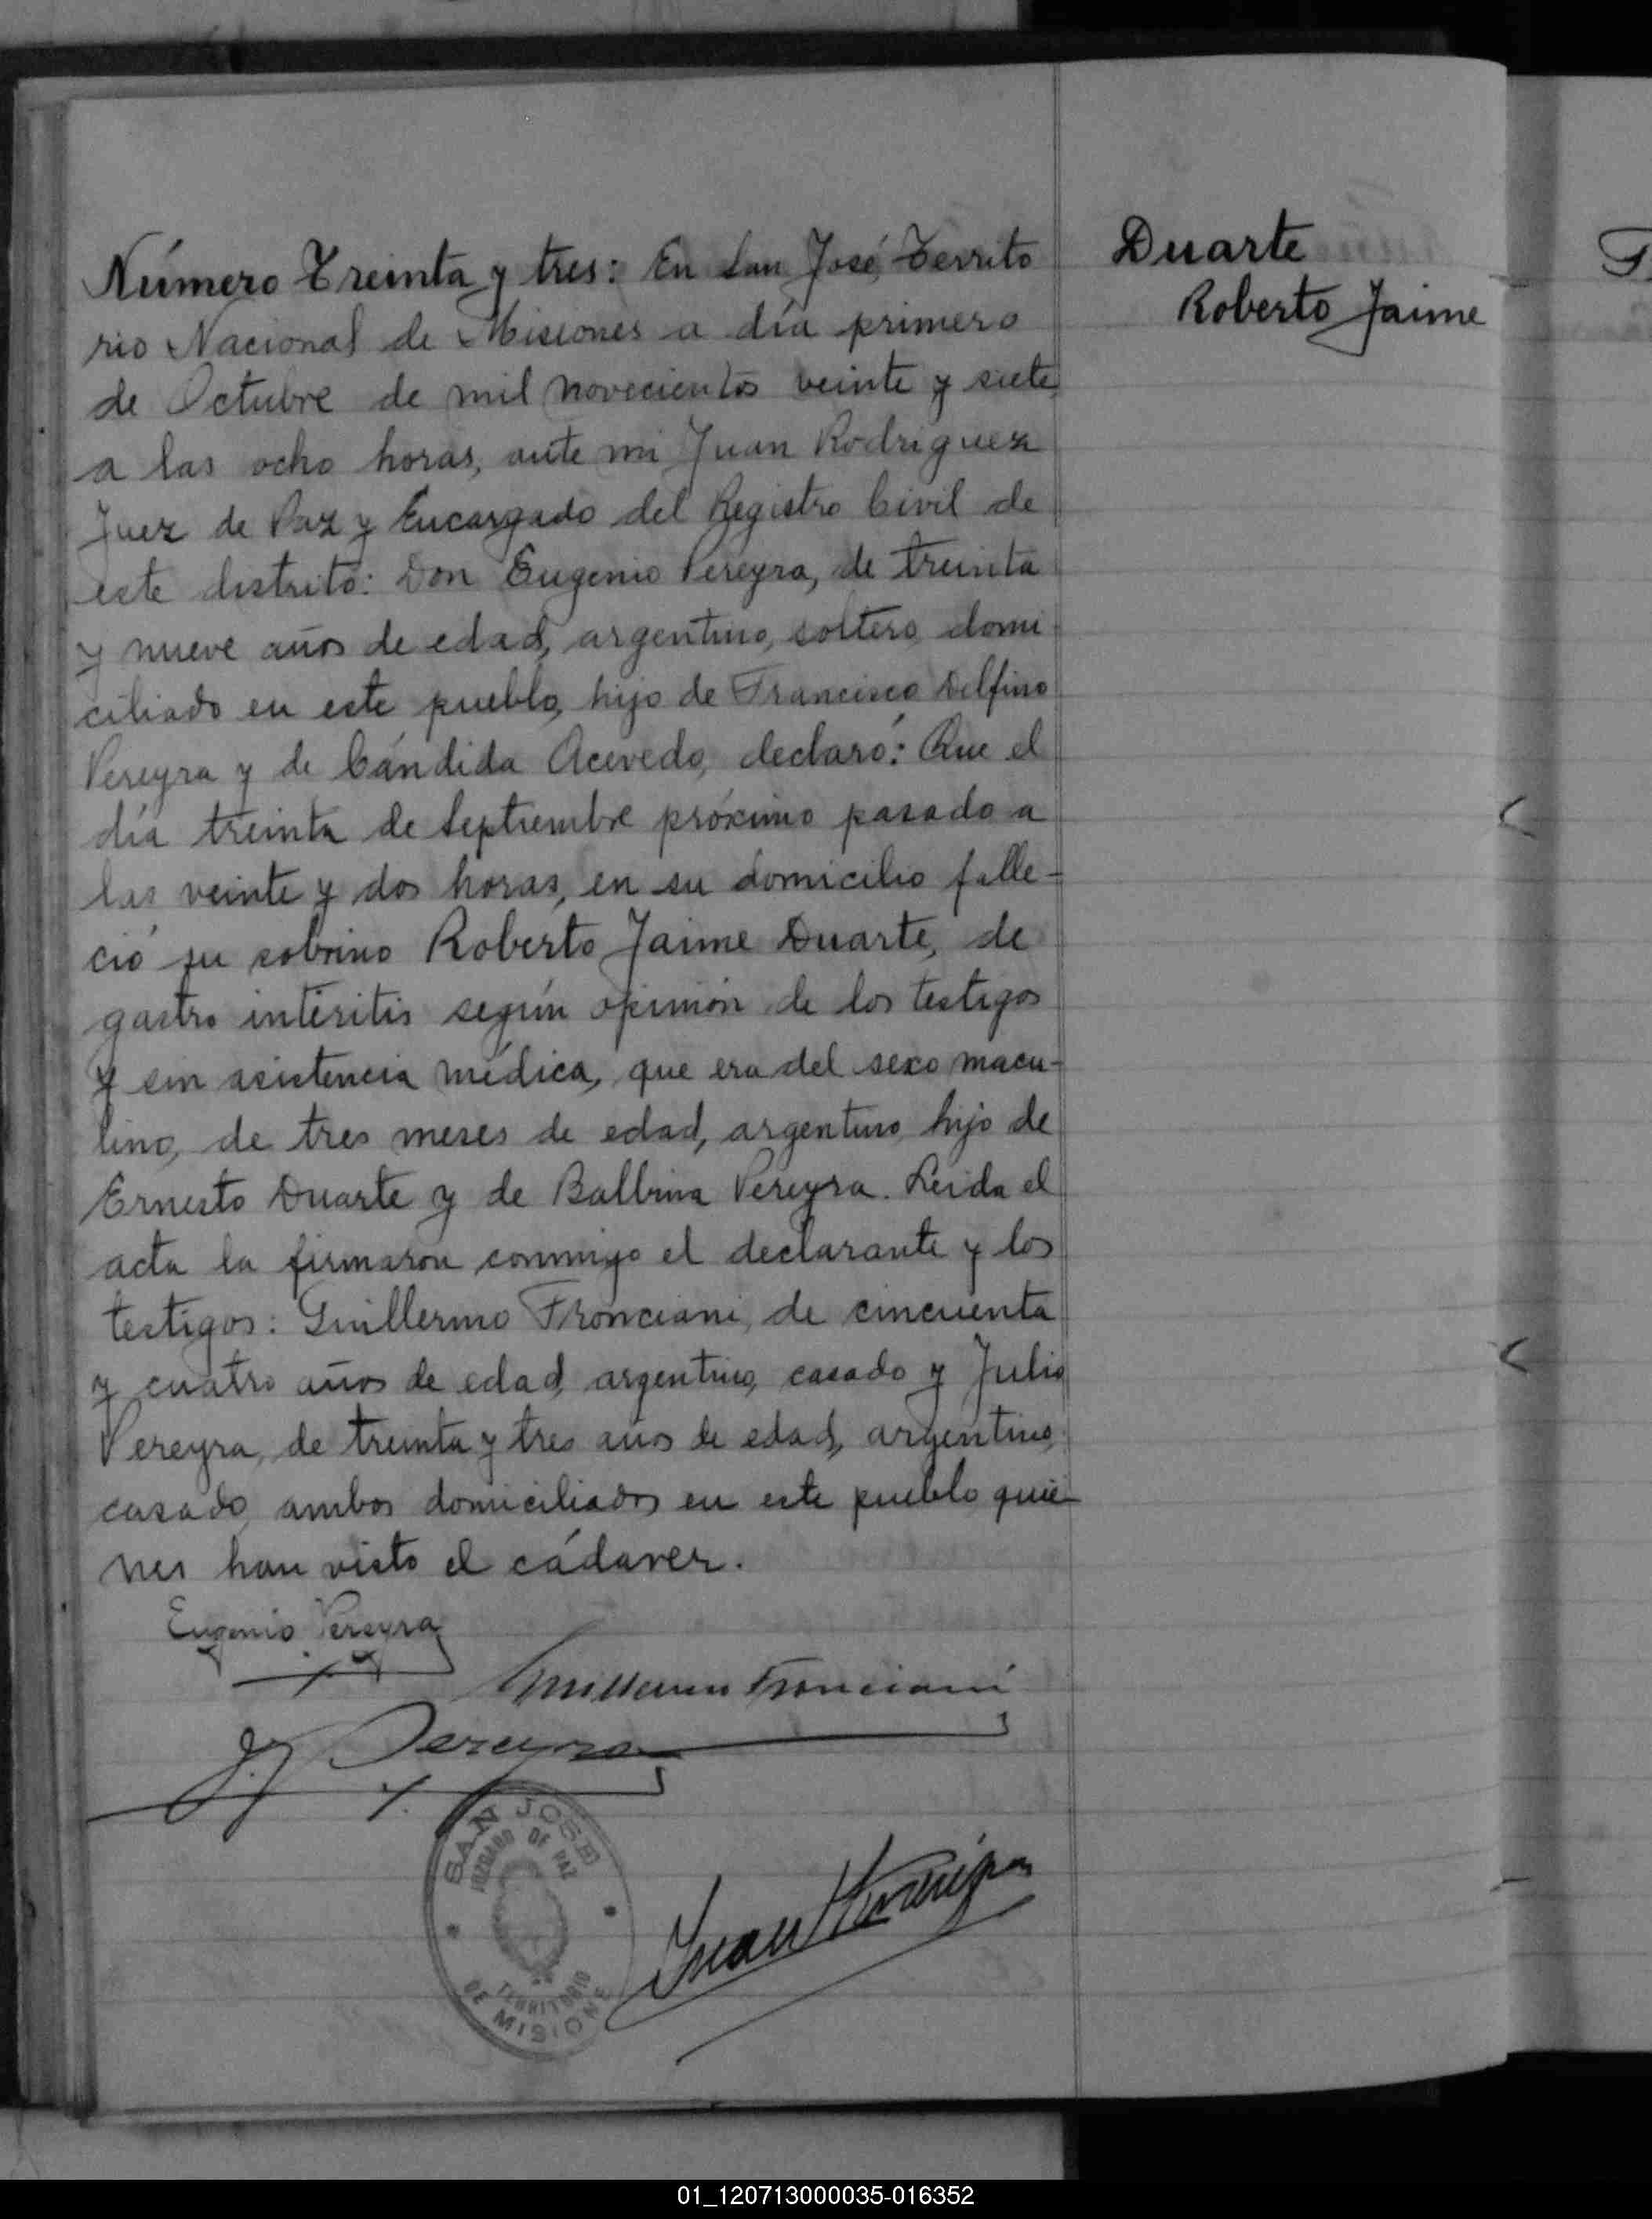 Número Treinta y tres: En San José, Territo
rio Nacional de Misiones a día primero
de Octubre de mil novecientos veinte y siete,
a las ocho horas, ante mi Juan Rodriguez
Juez de Paz y Encargado del Registro Civil de
este distrito: Don Eugenio Pereyra, de treinta
y nueve años de edad, argentino, soltero, domi-
ciliado en este pueblo, hijo de Francisco Delfino
Pereyra y de Cándida Acevedo, declaró: Que el
día treinta de Septiembre próximo pasado a
las veinte y dos horas, en su domicilio falle-
ció su sobrino Roberto Jaime Duarte, de
gastro interitis según opinión de los testigos
y sin asistencia médica, que era del sexo mascu-
lino, de tres meses de edad, argentino, hijo de
Ernesto Duarte y de Balbina Pereyra. Leida el
acta la firmaron conmigo el declarante y los
testigos: Guillermo Fronciani, de cincuenta
y cuatro años de edad, argentino, casado y Julio
Pereyra, de treinta y tres años de edad, argentino,
casado, ambos domiciliados en este pueblo quie-
nes han visto el cádaver.
Eugenio Pereyra
Guillermo Fronciani
J. Pereyra
SAN JOSE
JUZGADO DE PAZ
TERRITORIO
DE MISIONES
Juan Rodriguez
Duarte
Roberto Jaime
01_120713000035-016352